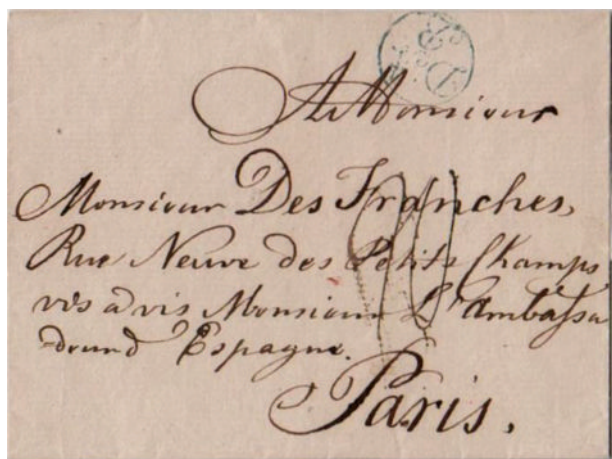 A Monsieur
Monsieur Des Franches,
Rue Neuve des Petits Champs
vis a vis Monsieur L'ambassa
d Espagne.
Paris.